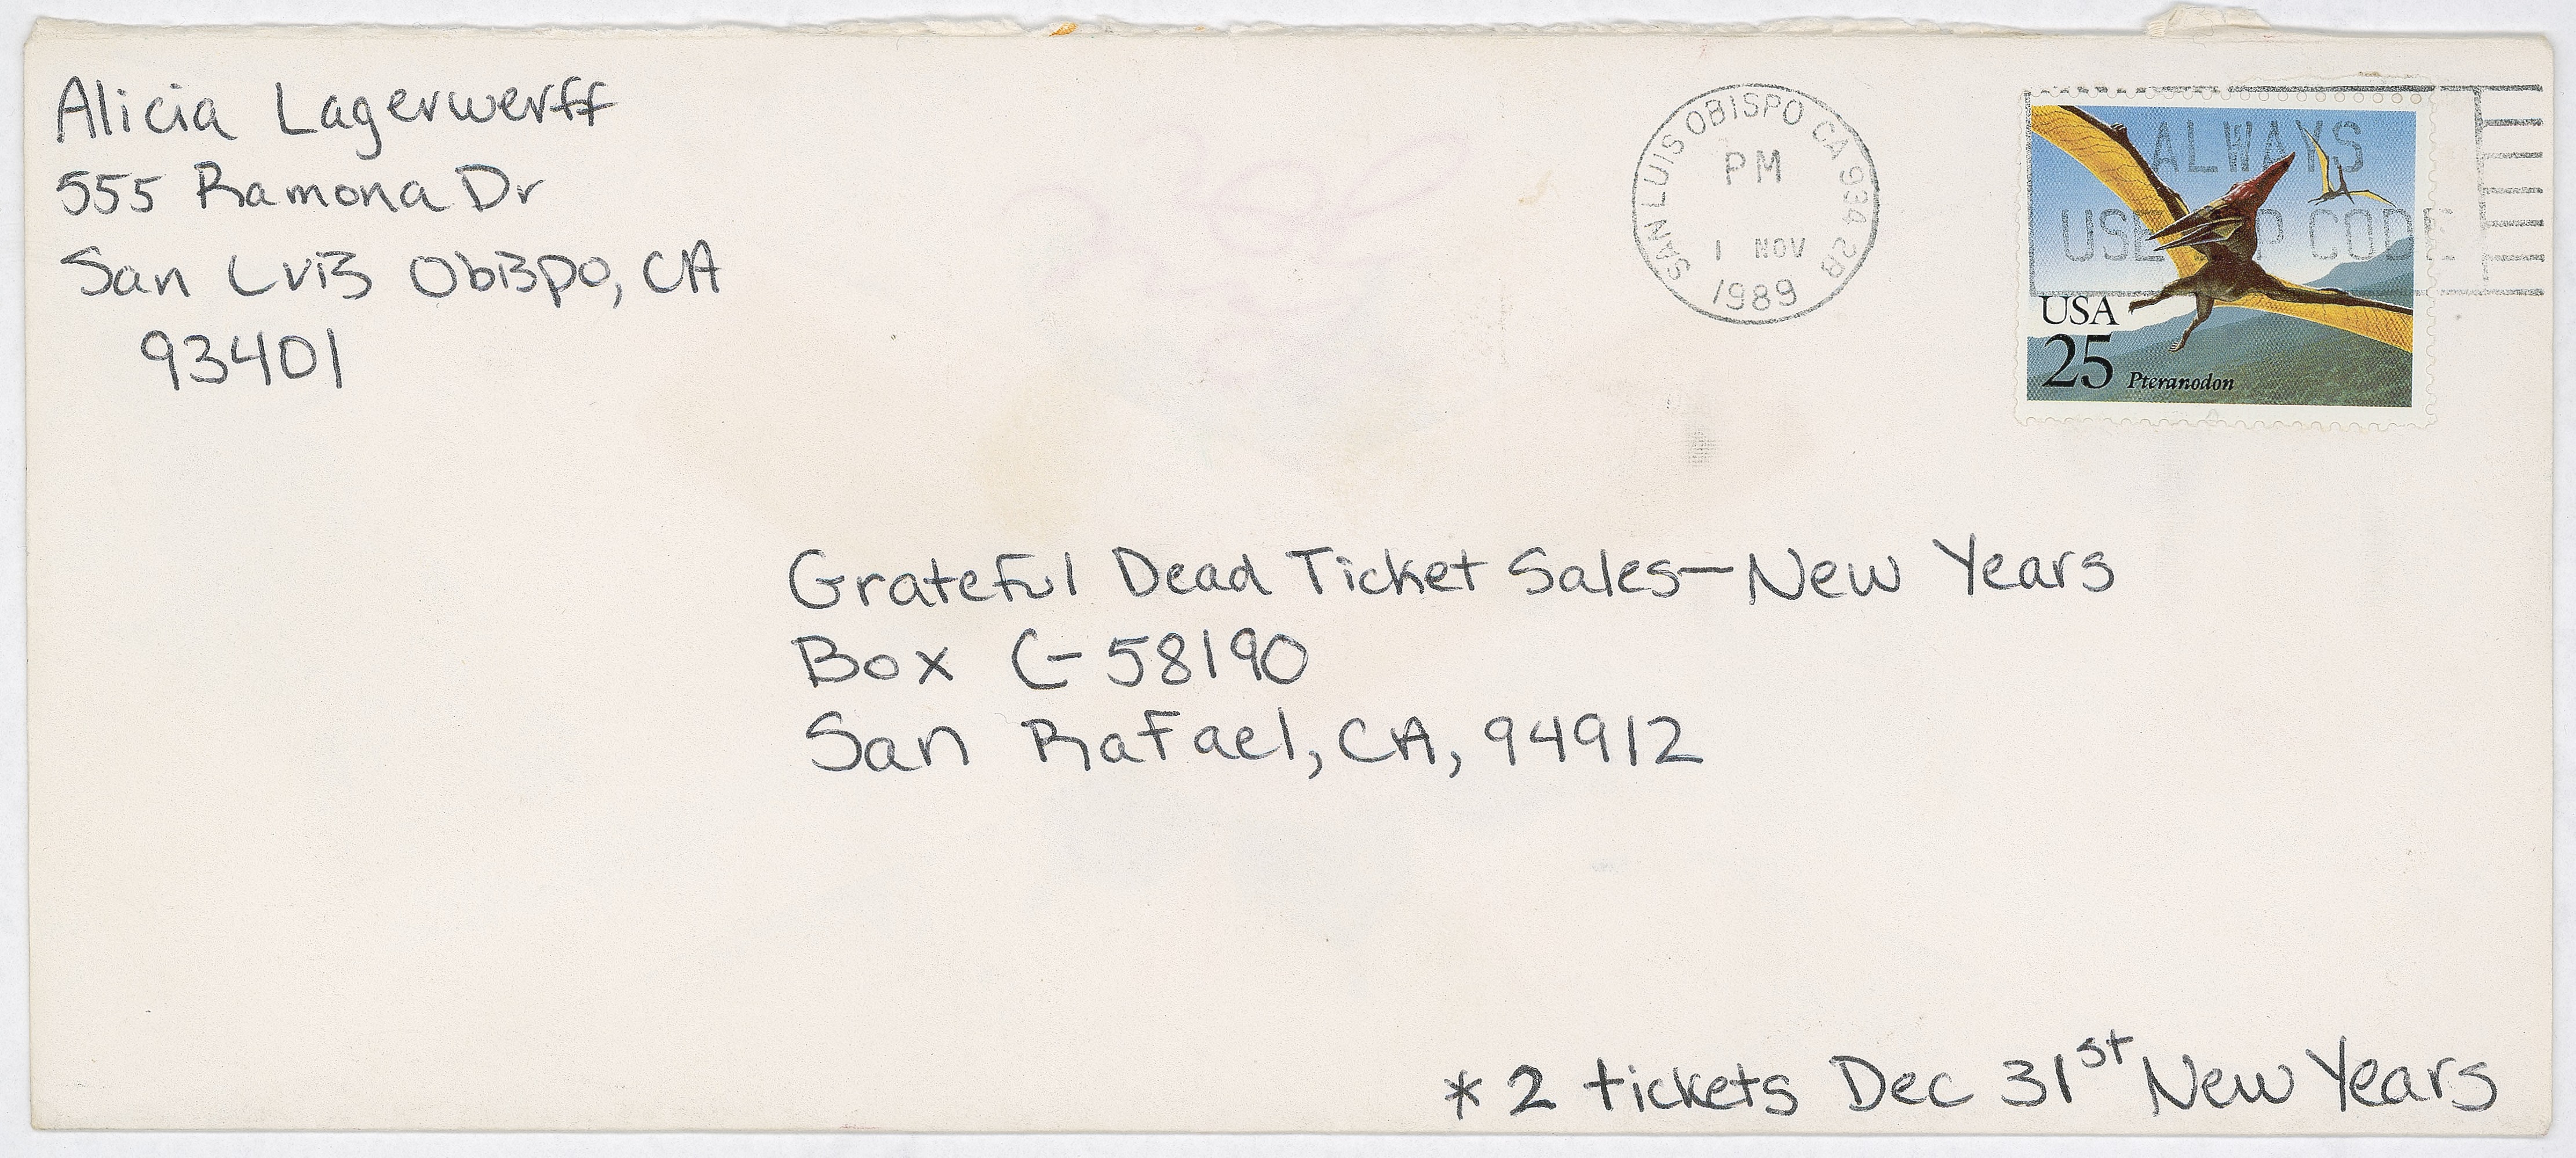 Alicia Lagerwerff
555 Ramona Dr
San Luis Obispo, CA
93401
SAN LUIS OBISPO CA 934 2B
PM
1 NOV
1989
ALWAYS
USE ZIP CODE
USA
25 Pteranodon
Grateful Dead Ticket Sales—New Years
Box C-58190
San Rafael, CA, 94912
* 2 tickets Dec 31st New Years